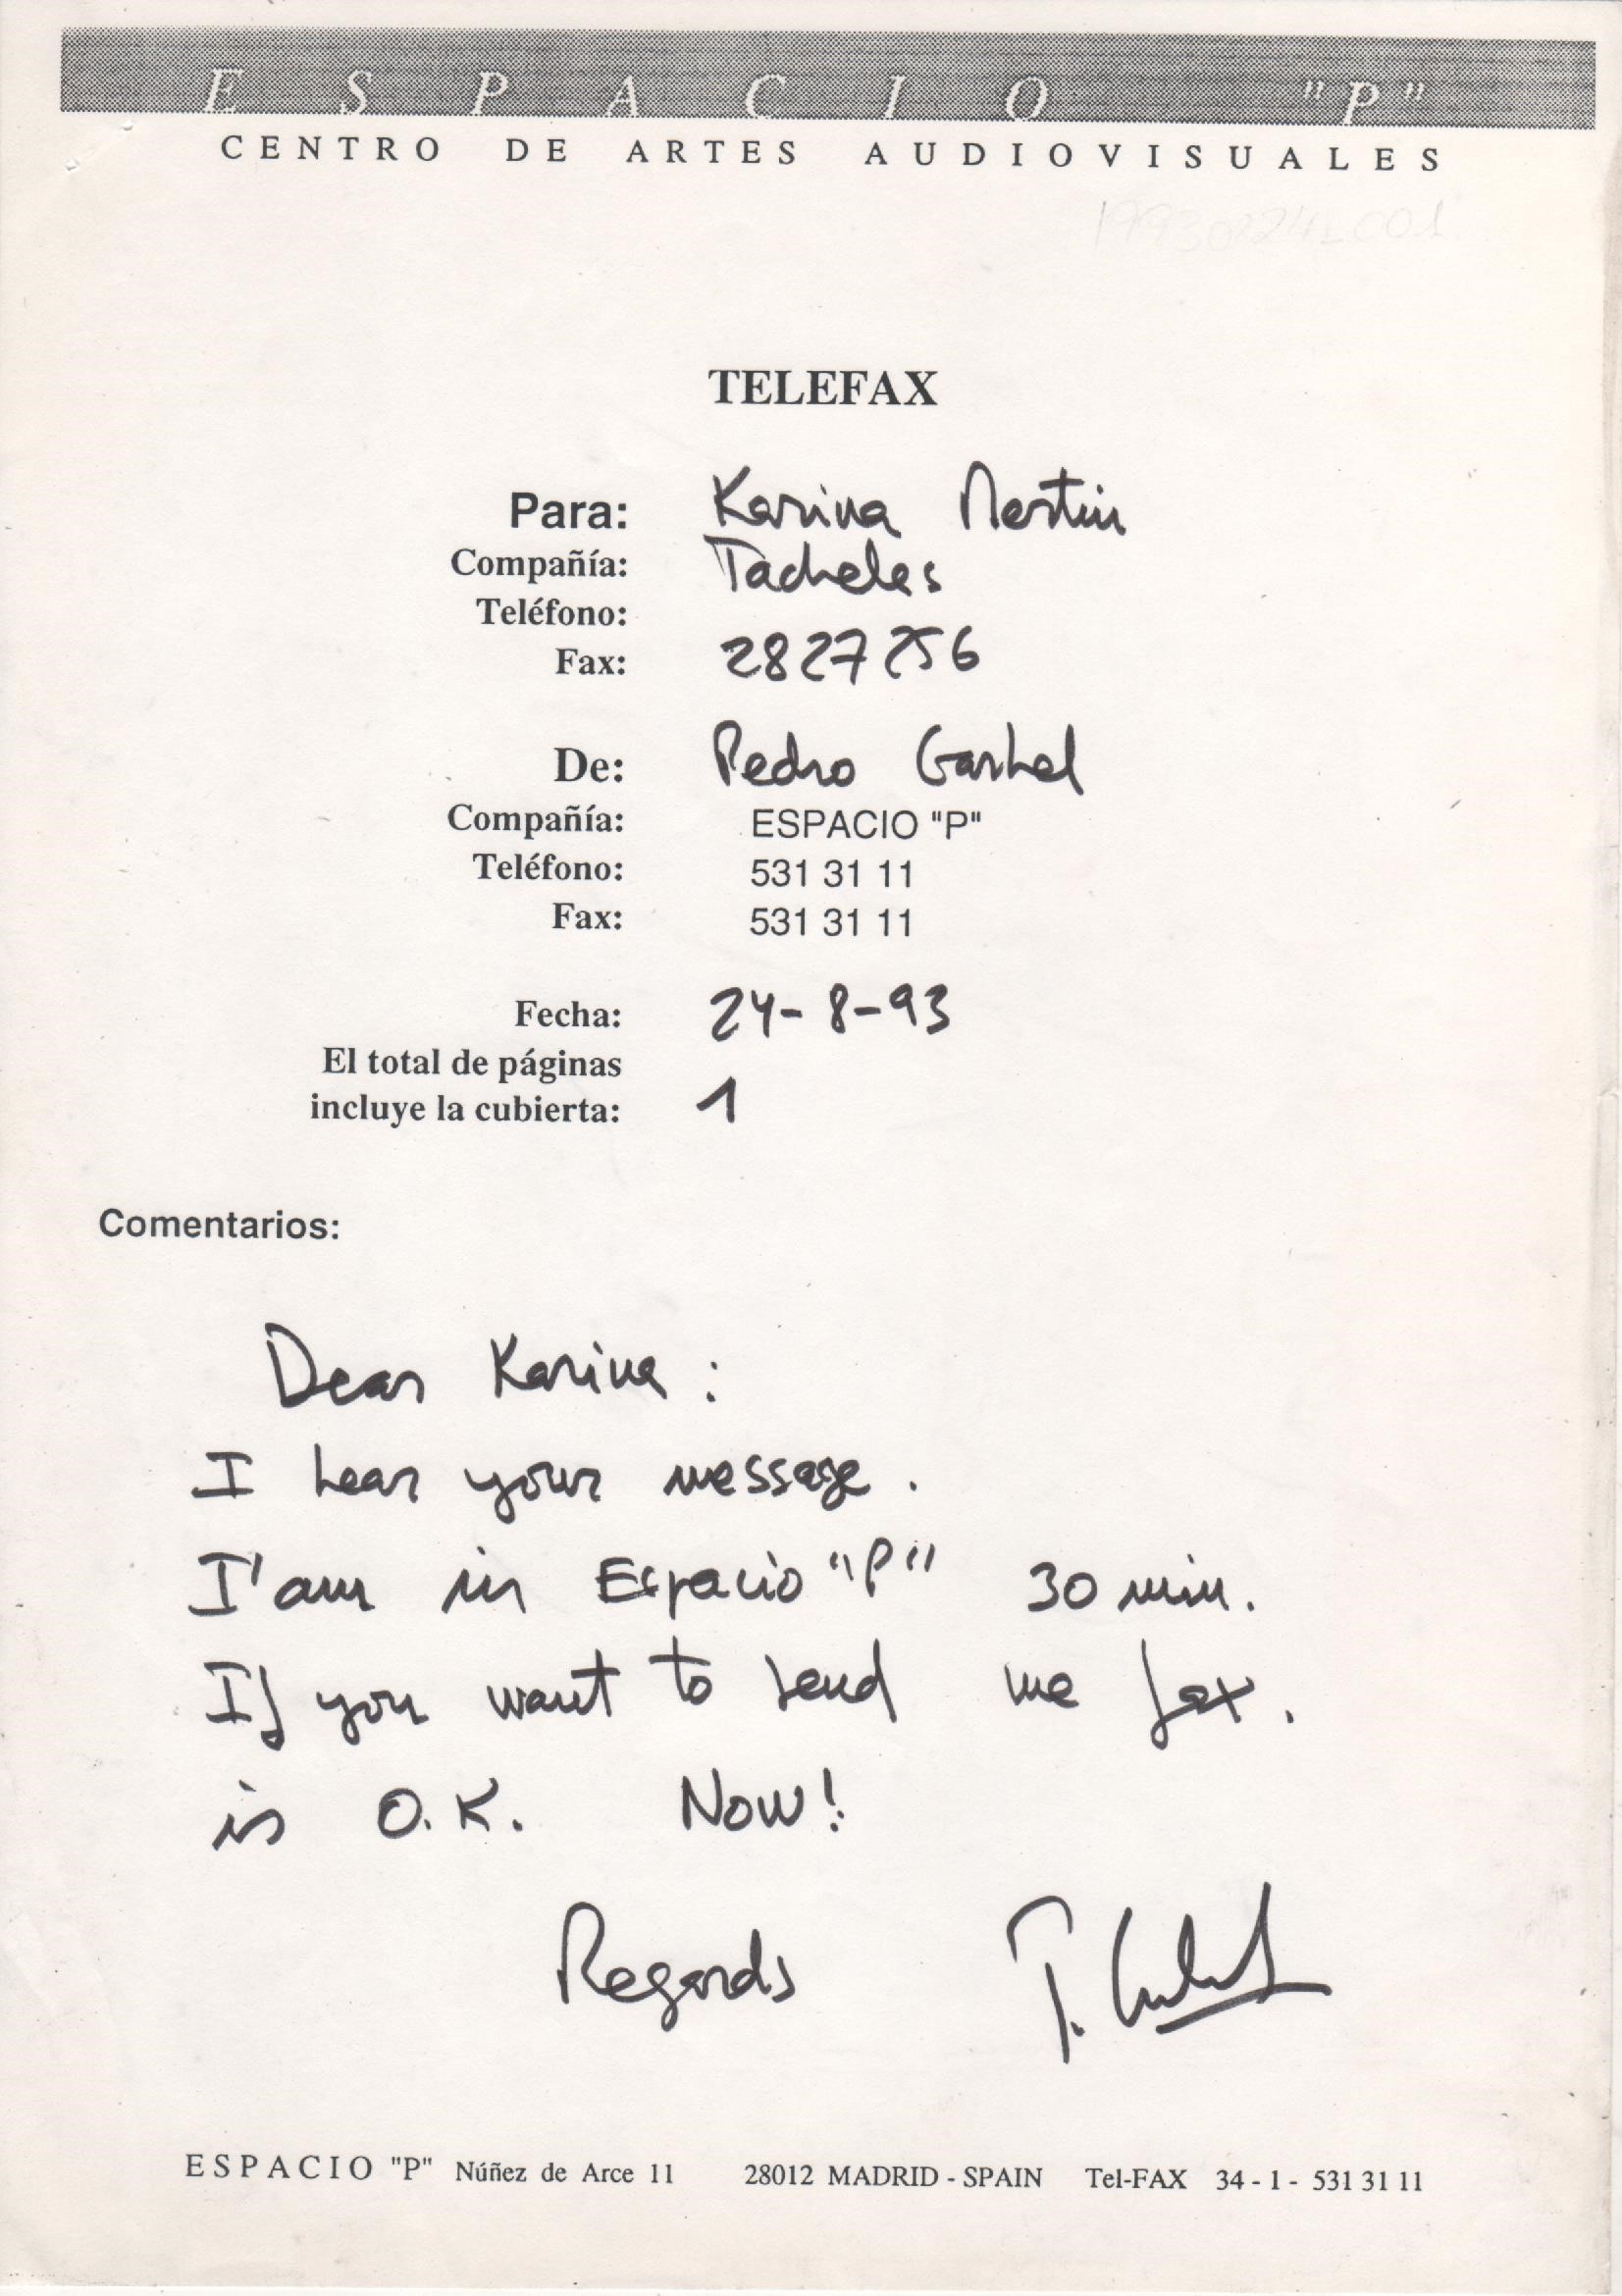 ESPACIO "P"
CENTRO DE ARTES AUDIOVISUALES
TELEFAX
Para: Karina Martin
Compañía: Tacheles
Teléfono:
Fax: 2827256
De: Pedro Garhel
Compañía: ESPACIO "P"
Teléfono: 531 31 11
Fax: 531 31 11
Fecha: 24-8-93
El total de páginas
incluye la cubierta: 1
Comentarios:
Dear Karina:
I hear your message.
I'am in Espacio "P" 30 min.
If you want to send me fax.
is O.K. Now!
Regards P. Garhel
ESPACIO "P" Núñez de Arce 11 28012 MADRID - SPAIN Tel-FAX 34 - 1 - 531 31 11